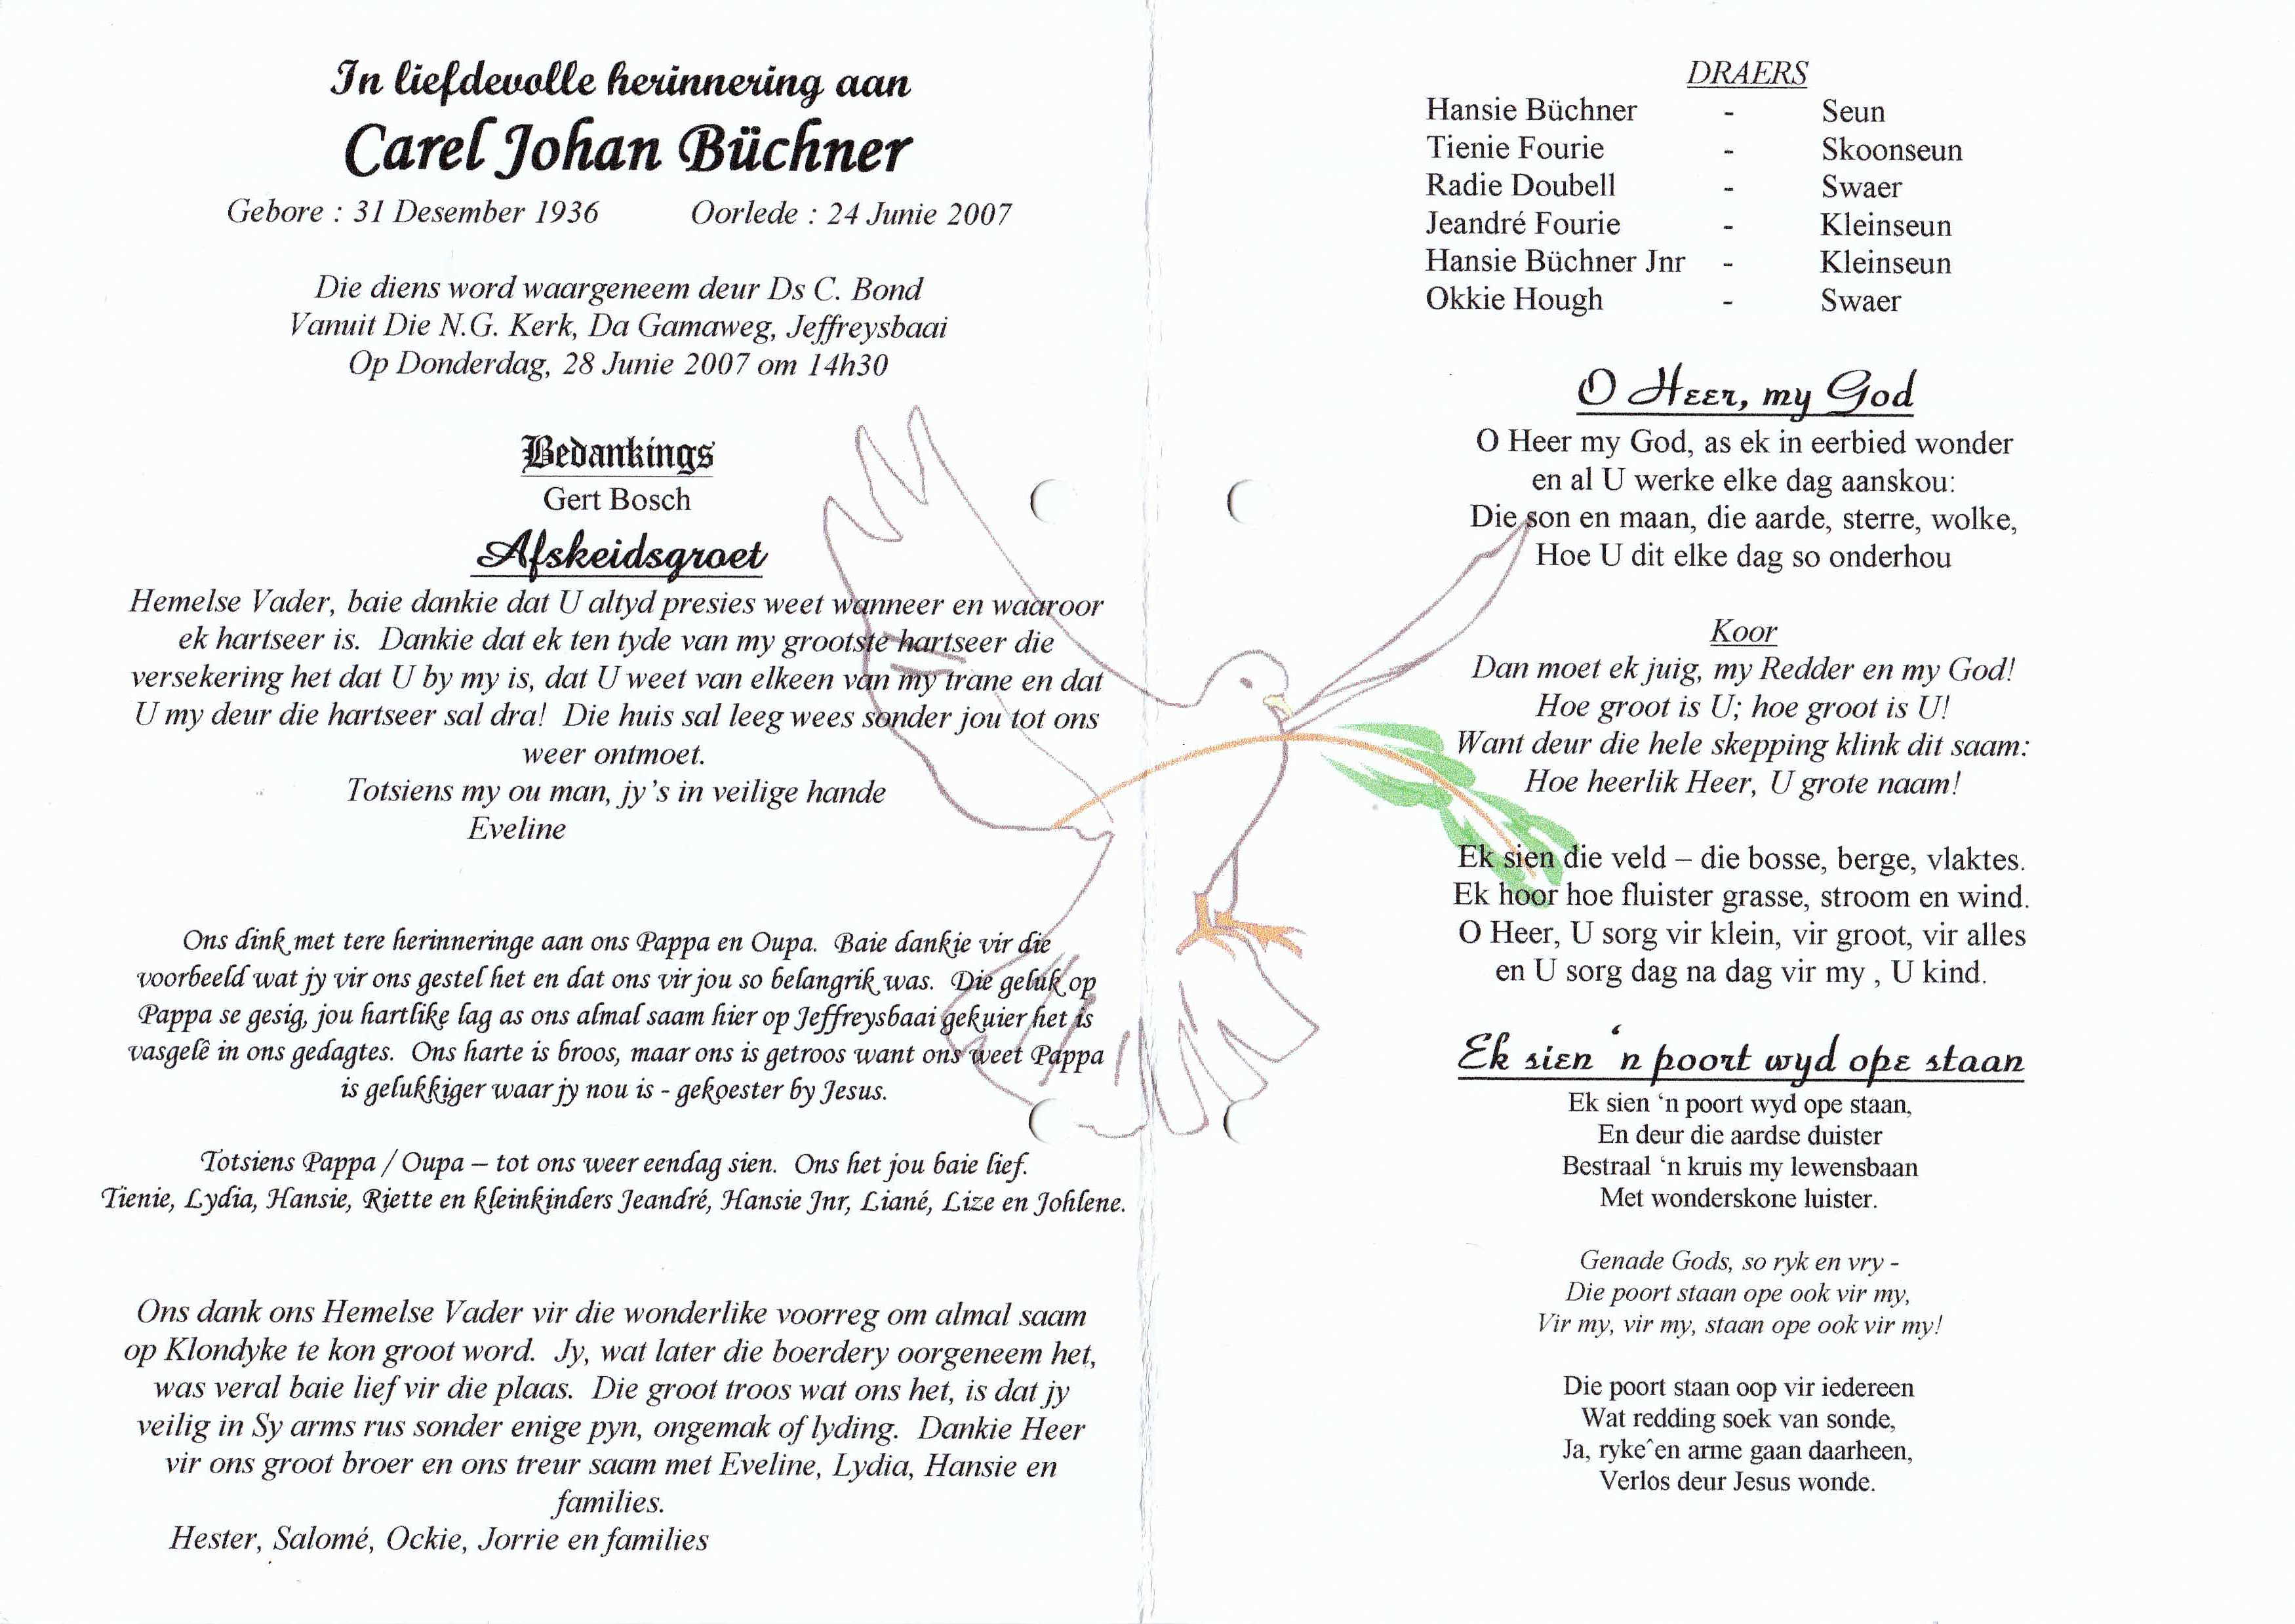 In liefdevolle herinnering aan
Carel Johan Büchner
Gebore : 31 Desember 1936 Oorlede : 24 Junie 2007
Die diens word waargeneem deur Ds C. Bond
Vanuit Die N.G. Kerk, Da Gamaweg, Jeffreysbaai
Op Donderdag, 28 Junie 2007 om 14h30
Bedankings
Gert Bosch
Afskeidsgroet
Hemelse Vader, baie dankie dat U altyd presies weet wanneer en waaroor
ek hartseer is. Dankie dat ek ten tyde van my grootste hartseer die
versekering het dat U by my is, dat U weet van elkeen van my trane en dat
U my deur die hartseer sal dra! Die huis sal leeg wees sonder jou tot ons
weer ontmoet.
Totsiens my ou man, jy's in veilige hande
Eveline
Ons dink met tere herinneringe aan ons Pappa en Oupa. Baie dankie vir die
voorbeeld wat jy vir ons gestel het en dat ons vir jou so belangrik was. Die geluk op
Pappa se gesig, jou hartlike lag as ons almal saam hier op Jeffreysbaai gekuier het is
vasgelê in ons gedagtes. Ons harte is broos, maar ons is getroos want ons weet Pappa
is gelukkiger waar jy nou is - gekoester by Jesus.
Totsiens Pappa / Oupa – tot ons weer eendag sien. Ons het jou baie lief.
Tienie, Lydia, Hansie, Riette en kleinkinders Jeandré, Hansie Jnr, Liané, Lize en Johlene.
Ons dank ons Hemelse Vader vir die wonderlike voorreg om almal saam
op Klondyke te kon groot word. Jy, wat later die boerdery oorgeneem het,
was veral baie lief vir die plaas. Die groot troos wat ons het, is dat jy
veilig in Sy arms rus sonder enige pyn, ongemak of lyding. Dankie Heer
vir ons groot broer en ons treur saam met Eveline, Lydia, Hansie en
families.
Hester, Salomé, Ockie, Jorrie en families
DRAERS
Hansie Büchner - Seun
Tienie Fourie - Skoonseun
Radie Doubell - Swaer
Jeandré Fourie - Kleinseun
Hansie Büchner Jnr - Kleinseun
Okkie Hough - Swaer
O Heer, my God
O Heer my God, as ek in eerbied wonder
en al U werke elke dag aanskou:
Die son en maan, die aarde, sterre, wolke,
Hoe U dit elke dag so onderhou
Koor
Dan moet ek juig, my Redder en my God!
Hoe groot is U; hoe groot is U!
Want deur die hele skepping klink dit saam:
Hoe heerlik Heer, U grote naam!
Ek sien die veld – die bosse, berge, vlaktes.
Ek hoor hoe fluister grasse, stroom en wind.
O Heer, U sorg vir klein, vir groot, vir alles
en U sorg dag na dag vir my , U kind.
Ek sien ‘n poort wyd ope staan
Ek sien ‘n poort wyd ope staan,
En deur die aardse duister
Bestraal ‘n kruis my lewensbaan
Met wonderskone luister.
Genade Gods, so ryk en vry -
Die poort staan ope ook vir my,
Vir my, vir my, staan ope ook vir my!
Die poort staan oop vir iedereen
Wat redding soek van sonde,
Ja, ryke^en arme gaan daarheen,
Verlos deur Jesus wonde.